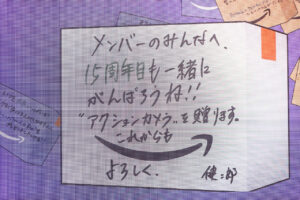 メンバーのみんなへ、
15周年目も一緒に
がんばろうね!!
"アクションカメラ"を贈ります。
これからも
よろしく、
健二郎